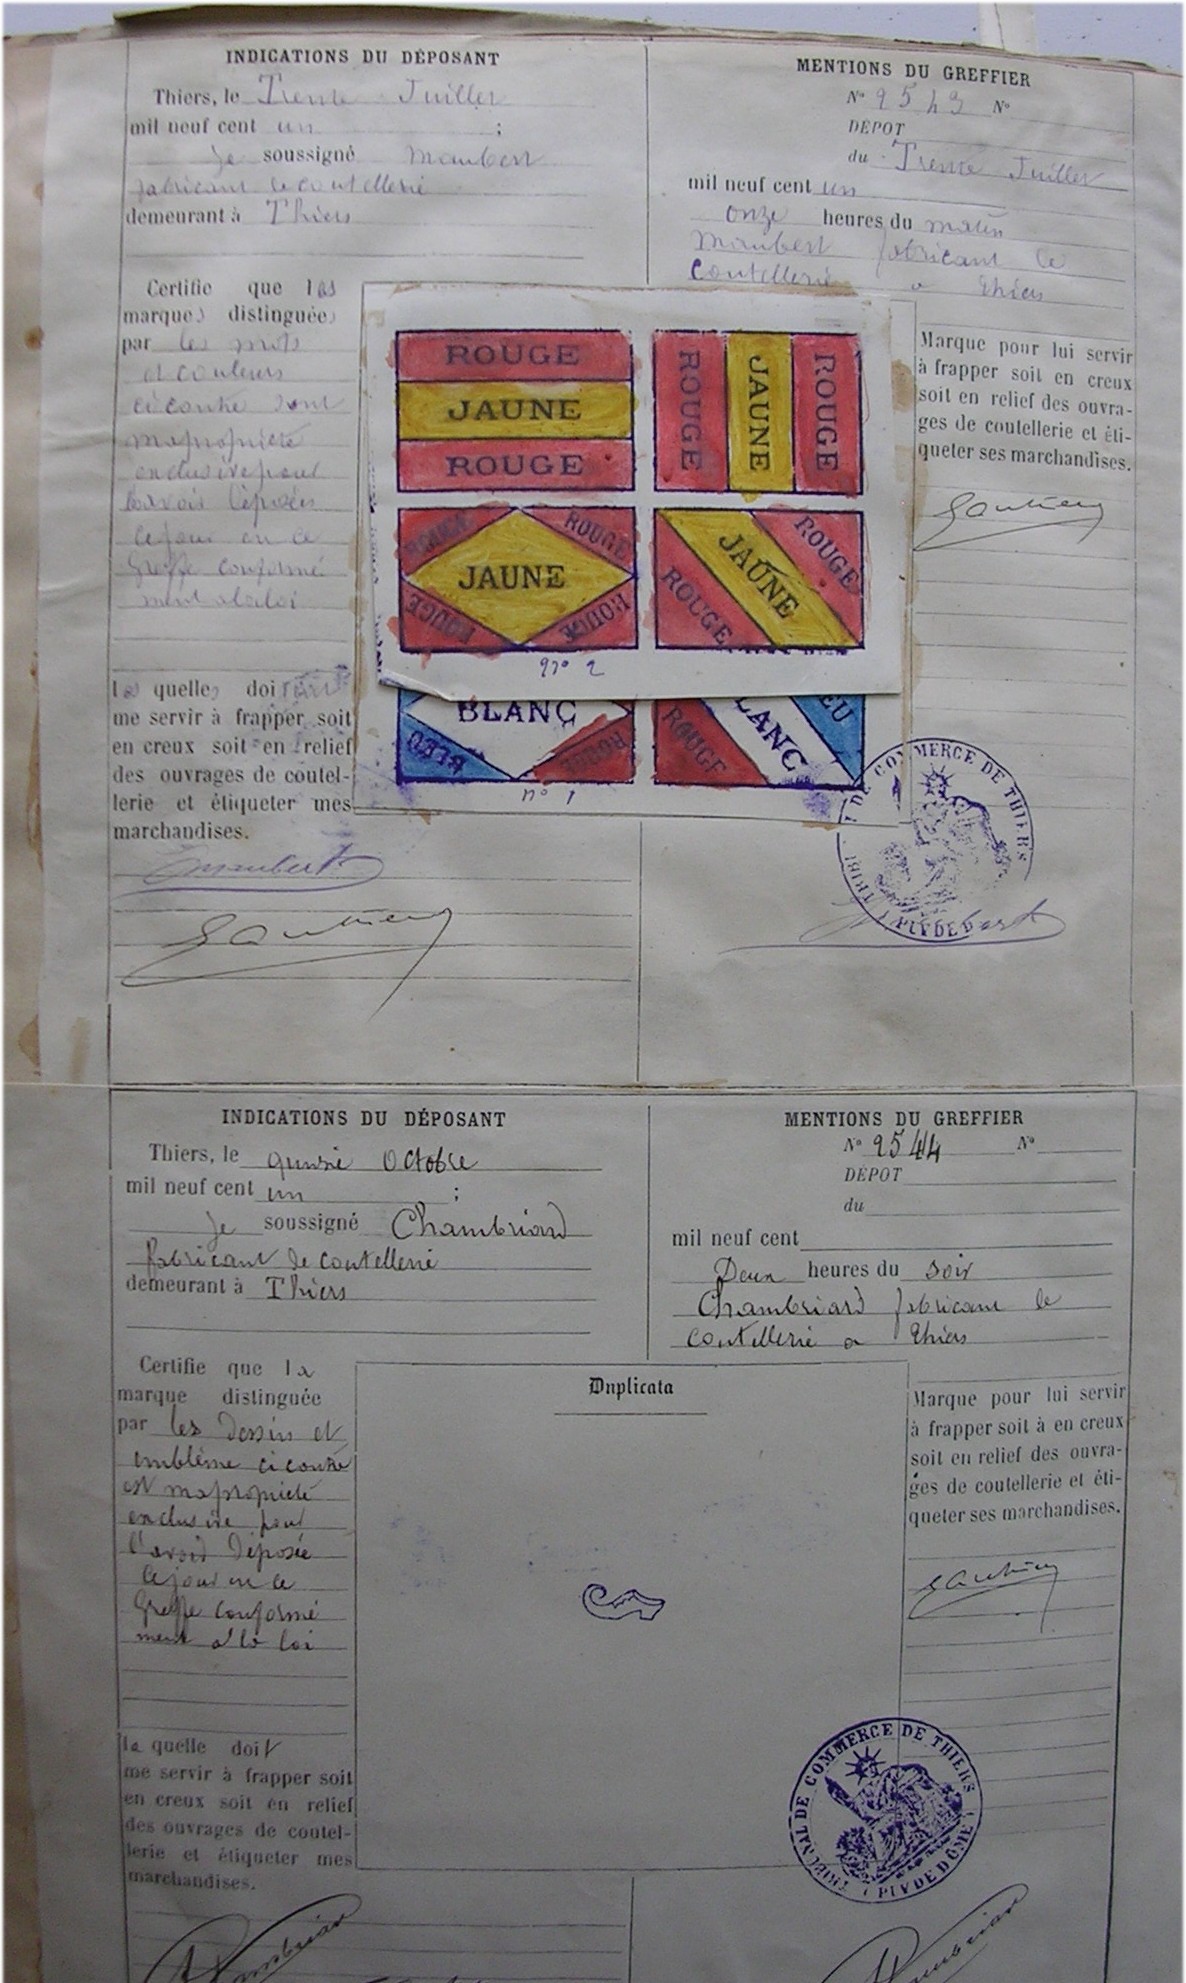 INDICATIONS DU DÉPOSANT
Thiers, le Trente Juillet
mil neuf cent un ;
Je soussigné Maubert
fabricant de coutellerie
demeurant à Thiers
Certifie que les
marques distinguées
par les mots
et couleurs
ci contre sont
ma propriété
exclusive pour
les avoir déposées
ce jour en ce
Greffe conformé
ment à la loi
les quelles doivent
me servir à frapper soit
en creux soit en relief
des ouvrages de coutel-
lerie et étiqueter mes
marchandises.
Maubert
Gauthier
MENTIONS DU GREFFIER
N° 2543 N°
DÉPOT
du Trente Juillet
mil neuf cent un
onze heures du matin
Maubert fabricant de
coutellerie a Thiers
ROUGE
JAUNE
ROUGE
ROUGE
JAUNE
ROUGE
ROUGE
ROUGE
JAUNE
ROUGE
ROUGE
ROUGE
JAUNE
ROUGE
n° 2
BLANC
BLEU
ROUGE
ROUGE
LANC
EU
n° 1
Marque pour lui servir
à frapper soit en creux
soit en relief des ouvra-
ges de coutellerie et éti-
queter ses marchandises.
Gauthier
TRIBL DE COMMERCE DE THIERS
(PUY DE DÔME)
INDICATIONS DU DÉPOSANT
Thiers, le quinze Octobre
mil neuf cent un ;
Je soussigné Chambriard
fabricant de coutellerie
demeurant à Thiers
Certifie que la
marque distinguée
par les dessins et
emblème ci contre
est ma propriété
exclusive pour
l'avoir déposée
ce jour en ce
Greffe conformé
ment à la loi
la quelle doit
me servir à frapper soit
en creux soit en relief
des ouvrages de coutel-
lerie et étiqueter mes
marchandises.
Chambriard
MENTIONS DU GREFFIER
N° 2544 N°
DÉPOT
du
mil neuf cent
Deux heures du soir
Chambriard fabricant de
coutellerie a Thiers
Duplicata
Marque pour lui servir
à frapper soit à en creux
soit en relief des ouvra-
ges de coutellerie et éti-
queter ses marchandises.
Gauthier
TRIBUNAL DE COMMERCE DE THIERS
(PUY DE DÔME)
Chambriard